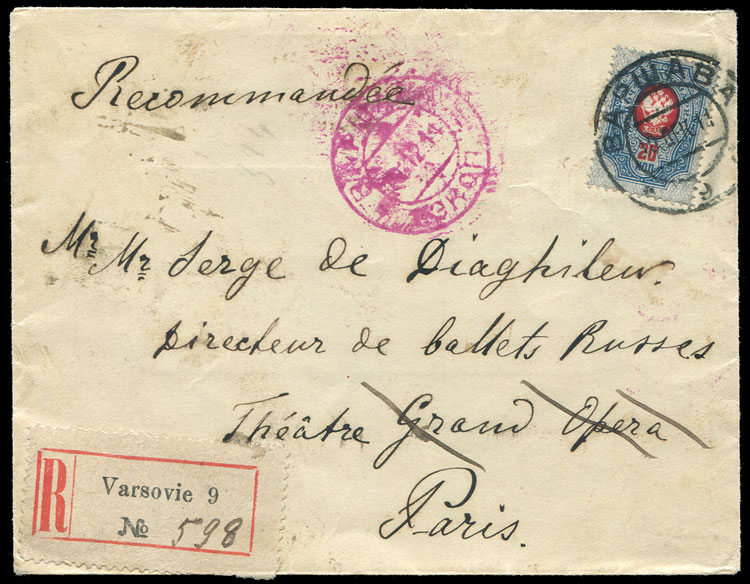 Recommandée
ВАРШАВА
9
20
12 14
Mr Mr Serge de Diaghilew.
Directeur de ballets Russes
Théâtre Grand Opera
Paris.
R
Varsovie 9
№ 598